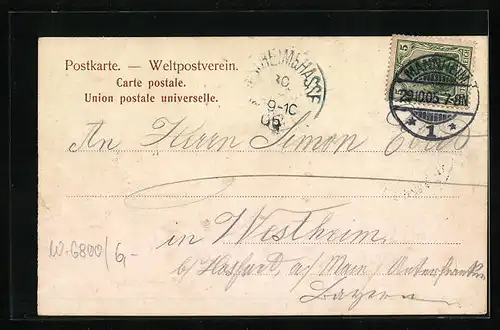 Postkarte. — Weltpostverein.
Carte postale.
Union postale universelle.
5
29.10.05 7-8N
* 1 *
9-10
05
An Herrn Simon
in Westheim
b/ Hassfurt, a/ Main, Unterfranken
Bayern
W-6800/6,-